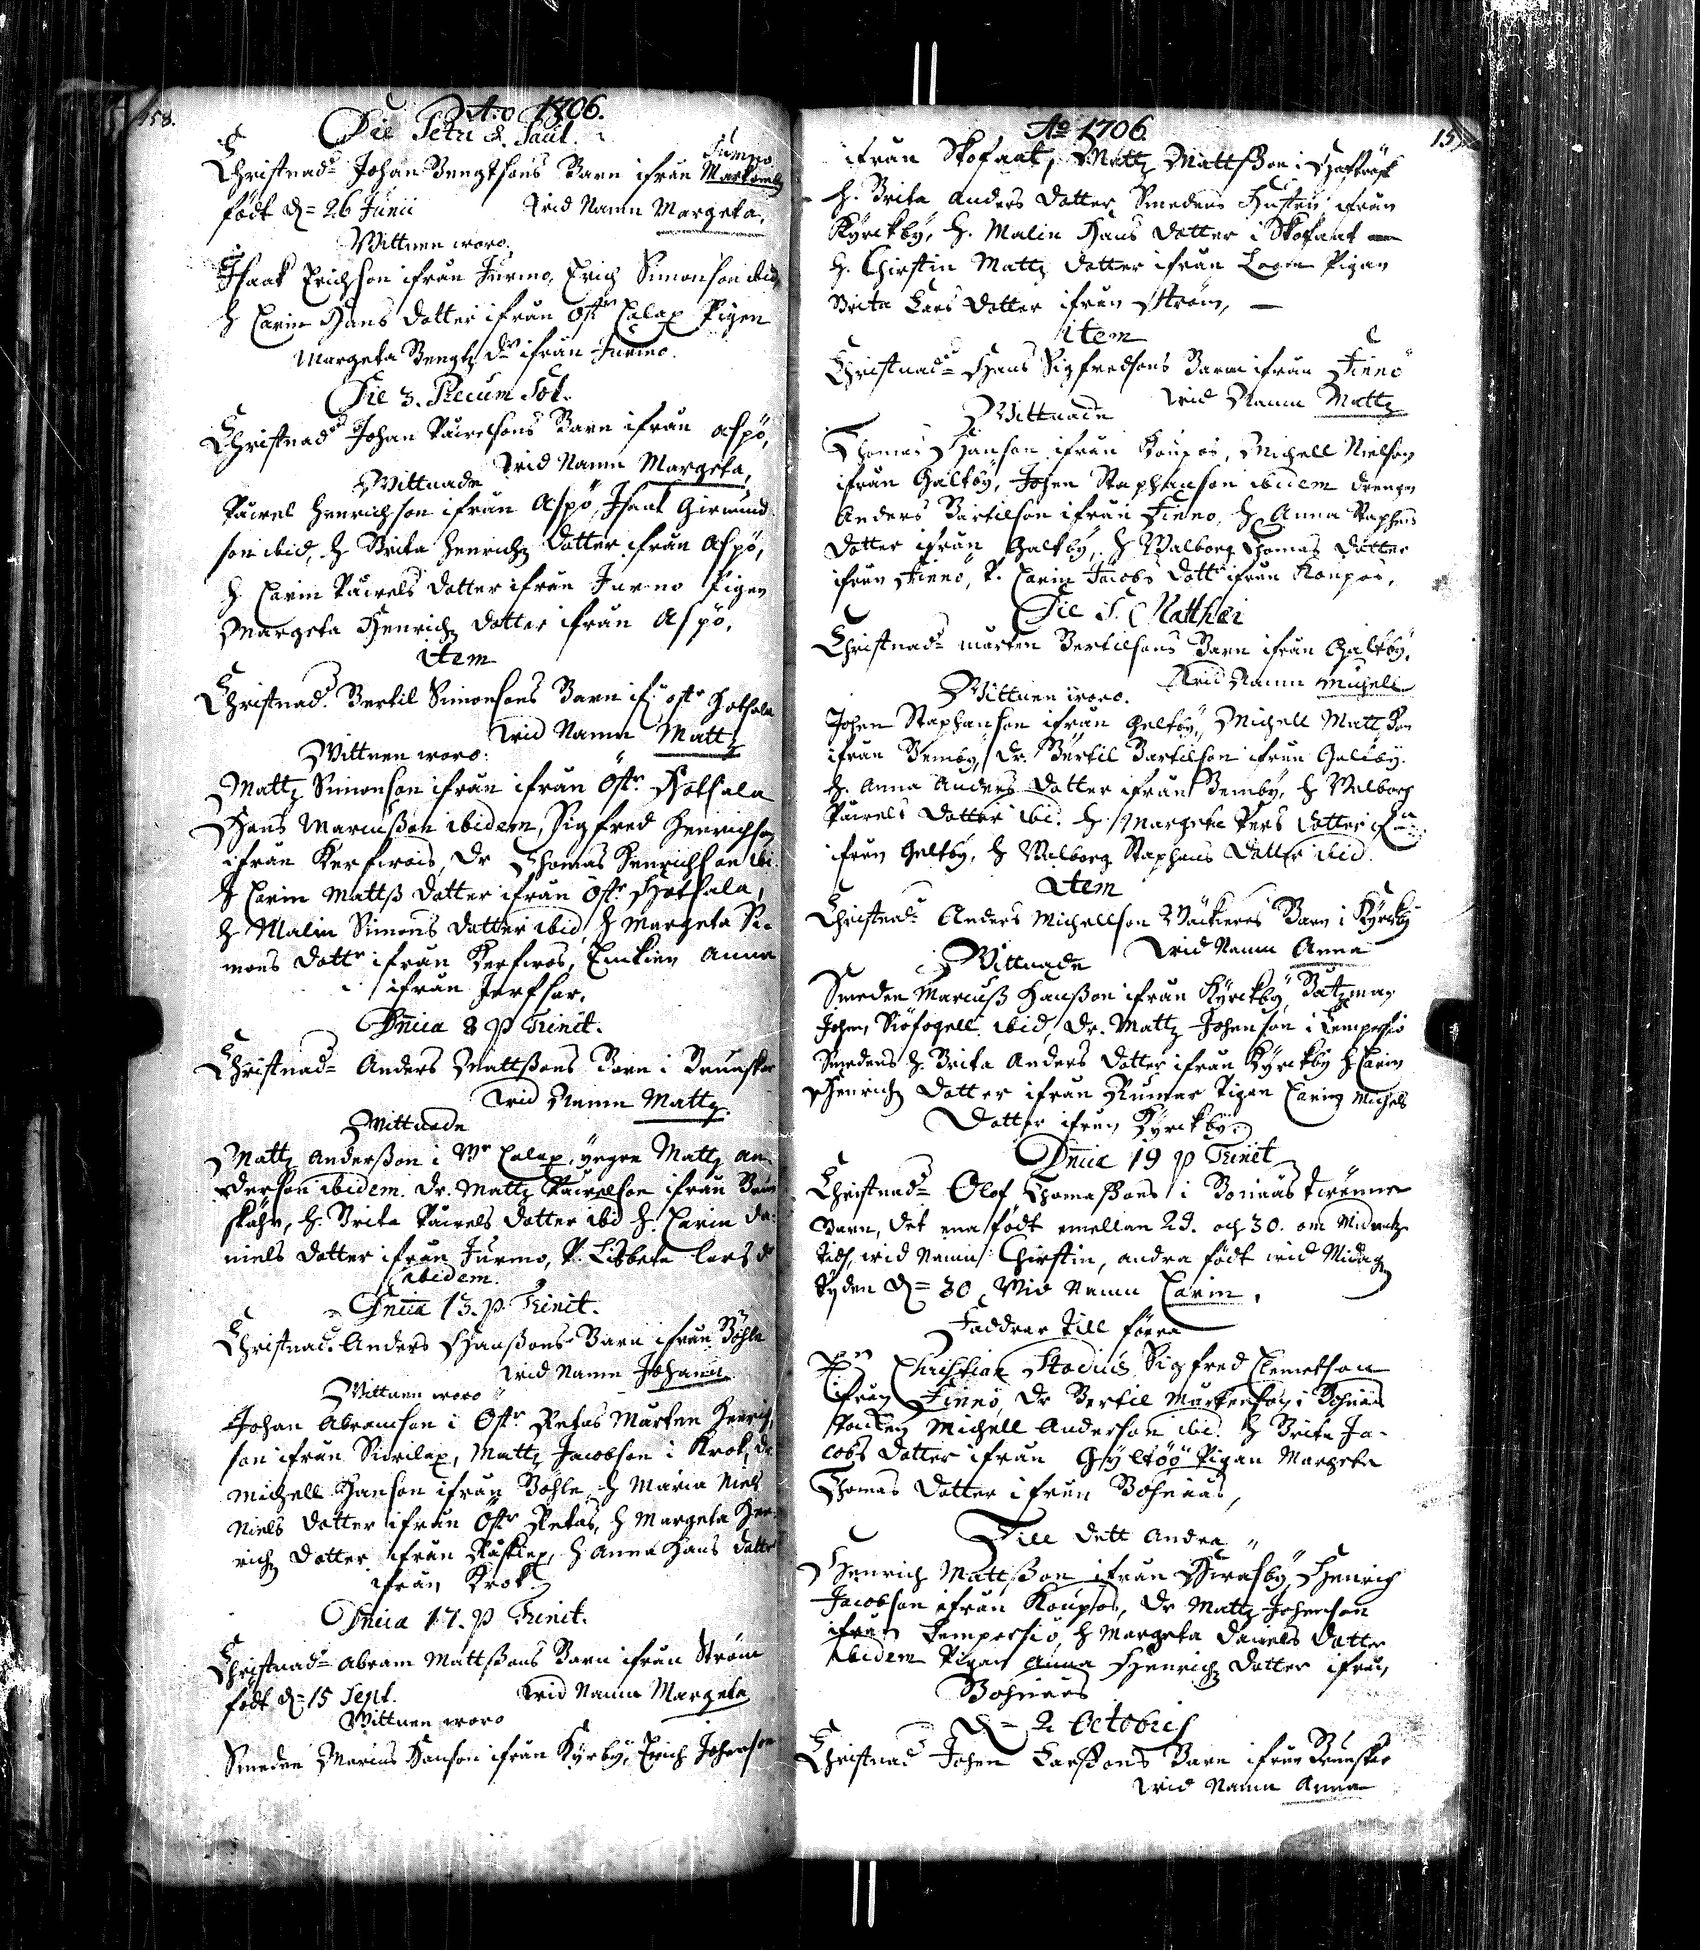 158.
Ao 1706.
Die Petri & Pauli.
Christnads Johan Bengtsons Barn ifrån Jurmo
födt d= 26 Junii wid Namn Margeta.
Wittnen woro.
Isaak Erichson ifrån Jurmo, Erich Simonson ibid
H Carin Hans dotter ifrån Östr Calax Pigen
Margeta Bengtz dr ifrån Jurmo.
Die 3. Precum Sol.
Christnads Johan Påwelsons Barn ifrån Aspö,
wid Namn Margeta,
Wittnade
Påwel Henrichson ifrån Aspö, Isaak Girmund
son ibid, H Brita Henrichz dotter ifrån Aspö,
H Carin Påwels dotter ifrån Jurmo Pigen
Margeta Henrichz dotter ifrån Aspö.
Item
Christnads Bertil Simonsons Barn ifr östr Hotsala
wid Namn Mattz
Wittnen woro:
Mattz Simonson ifrån ifrån Östr. Hotsala
Hans Marcusson ibidem, Sigfred Henrichson
ifrån Kerfwois, Dr Thomas Henrichson ibi.
H Carin Mattss dotter ifrån östr Hotsala,
H Malin Simons dotter ibid H Margeta Si-
mons dottr ifrån Kerfwos, Enkien Anna
ifrån Jerfsor.
Dnica 8 p Trinit.
Christnads Anders Mattssons Barn i Brunskär
wid Namn Mattz.
Wittnade
Mattz Andersson i Wr Calax, yngre Mattz An-
derson ibidem. Dr. Mattz Påwelson ifrån Brun
skähr, H. Brita Påwels dotter ibid H. Carin Da-
niels dotter ifrån Jurmo, P. Lisbeta Lars d
ibidem.
Dnica 13. p. Trinit.
Christnads Anders Hanssons Barn ifrån Böhle
wid Namn Johann
Wittnen woro
Johan Abramson i Östr Retas Mårten Henrich
son ifrån Sidrilax, Mattz Jacobson i Krok, Dr
Michell Hanson ifrån Böhle, H Maria Niels
Niels dotter ifrån Östr Retas, H Margeta Hen-
richz dotter ifrån H Anna Hans dotter
ifrån Krok.
Dnica 17. p Trinit.
Christnads Abram Mattssons Barn ifrån Ström
födt d= 15 Sept. wid Namn Margeta
Wittnen woro
Smeden Marcus Hanson ifrån Kyrkby, Erich Johanson
Ao 1706
ifrån Skofant, Mattz Mattsson i
H. Brita Anders dotter Smedens Hustru ifrån
Kyrckby, H. Malin Hans dotter i Skofant
H. Chirstin Mattz dotter ifrån Pigan
Brita Lars dotter ifrån Ström,
Item
Christnads Hans Sigfredsons Barn ifrån Finnö
wid Namn Mattz
Wittnade
Thomas Hanson ifrån Koupos, Michell Nielson
ifrån Galtby, Johan Staphanson ibidem drengen
Anders Bertilson ifrån Finnö, H Anna Staphens
dotter ifrån Galtby, H Walborg Thomas dotter
ifrån Finnö, P. Carin Jacobs dottr ifrån Koupos,
Die S. Matthæi
Christnads Mårten Bertilsons Barn ifrån Galtby,
wid Namn Michell
Wittnen woro.
Johan Staphanson ifrån Galtby, Michell Mattsson
ifrån Benby, Dr. Bertil Bertilson ifrån Galtby.
H. Anna Anders dotter ifrån Benby, H Walborg
Påwels dotter ibi. H. Margeta Pers dotter
ifrån Galtby, H Walborg Staphens dotter ibid.
Item
Christnads Anders Michellson Wäckieres Barn i Kyrckby
wid Namn Anna
Wittnade
Smeden Marcuss Hansson ifrån Kyrckby, Båtzman
Johan Siöfogell ibid, Dr. Mattz Johanson i Lempersiö
Smedens H. Brita Anders dotter ifrån Kyrckby H Carin
Henrichz dotter ifrån Rumar Pigan Carin Michels
dotter ifrån Kyrckby.
Dnica 19 p Trinit
Christnads Olof Thomassons i Bonäs twenne
Barn, det ena födt emellan 29. och 30. om Midnatz
tidh, wid Namn Chirstin, andra födt wid Midagz
tyden d= 30, wid Namn Carin.
Faddrar till förra
Christian Stodius Sigfred Clemetson
ifrån Finnö, Dr Bertil Mårtenson i Bohnäs
Michell Anderson ibi. H Brita Ja-
cobs dotter ifrån Gyltöö Pigan Margeta
Thomas dotter ifrån Bohnäs,
Till dett Andra
Henrich Mattsson ifrån Henrich
Jacobson ifrån Koupos, Dr Mattz Johanson
ifrån Lempersiö, H Margeta Daniels dotter
ibidem Pigan Anna Henrichz dotter ifrån
Bohnäs
d= 2 Octobris
Christnads Johan Larssons Barn ifrån Brunskär
wid Namn Anna